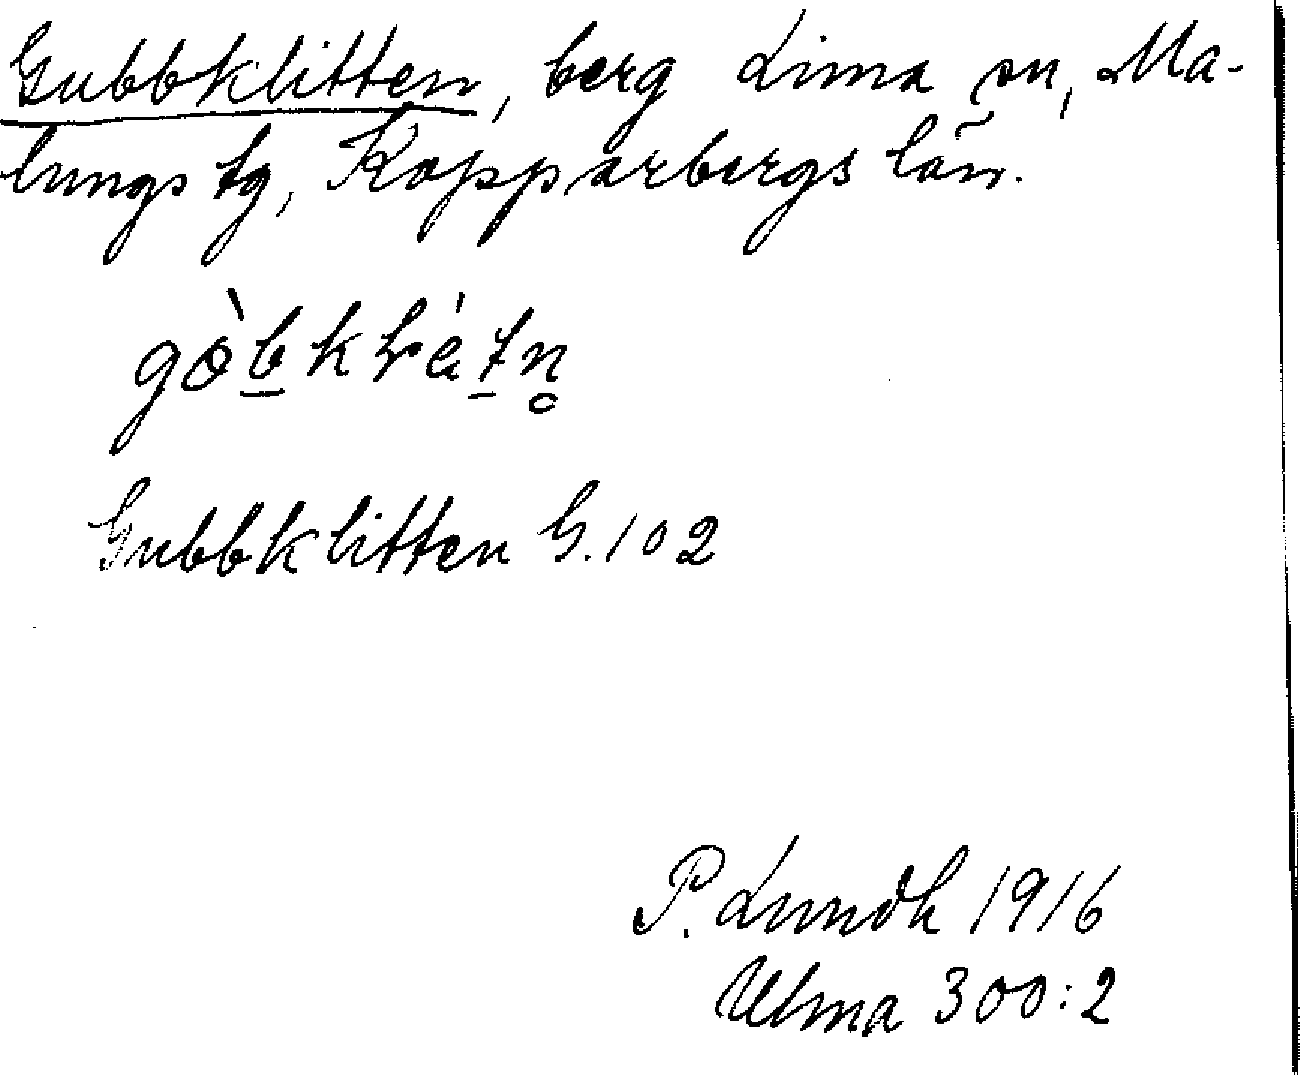 Gubbklitten, berg Lima sn, Ma-
lungs tg, Kopparbergs län.
Gubbklitten G. 102
P. Lundh 1916
Ulma 300:2